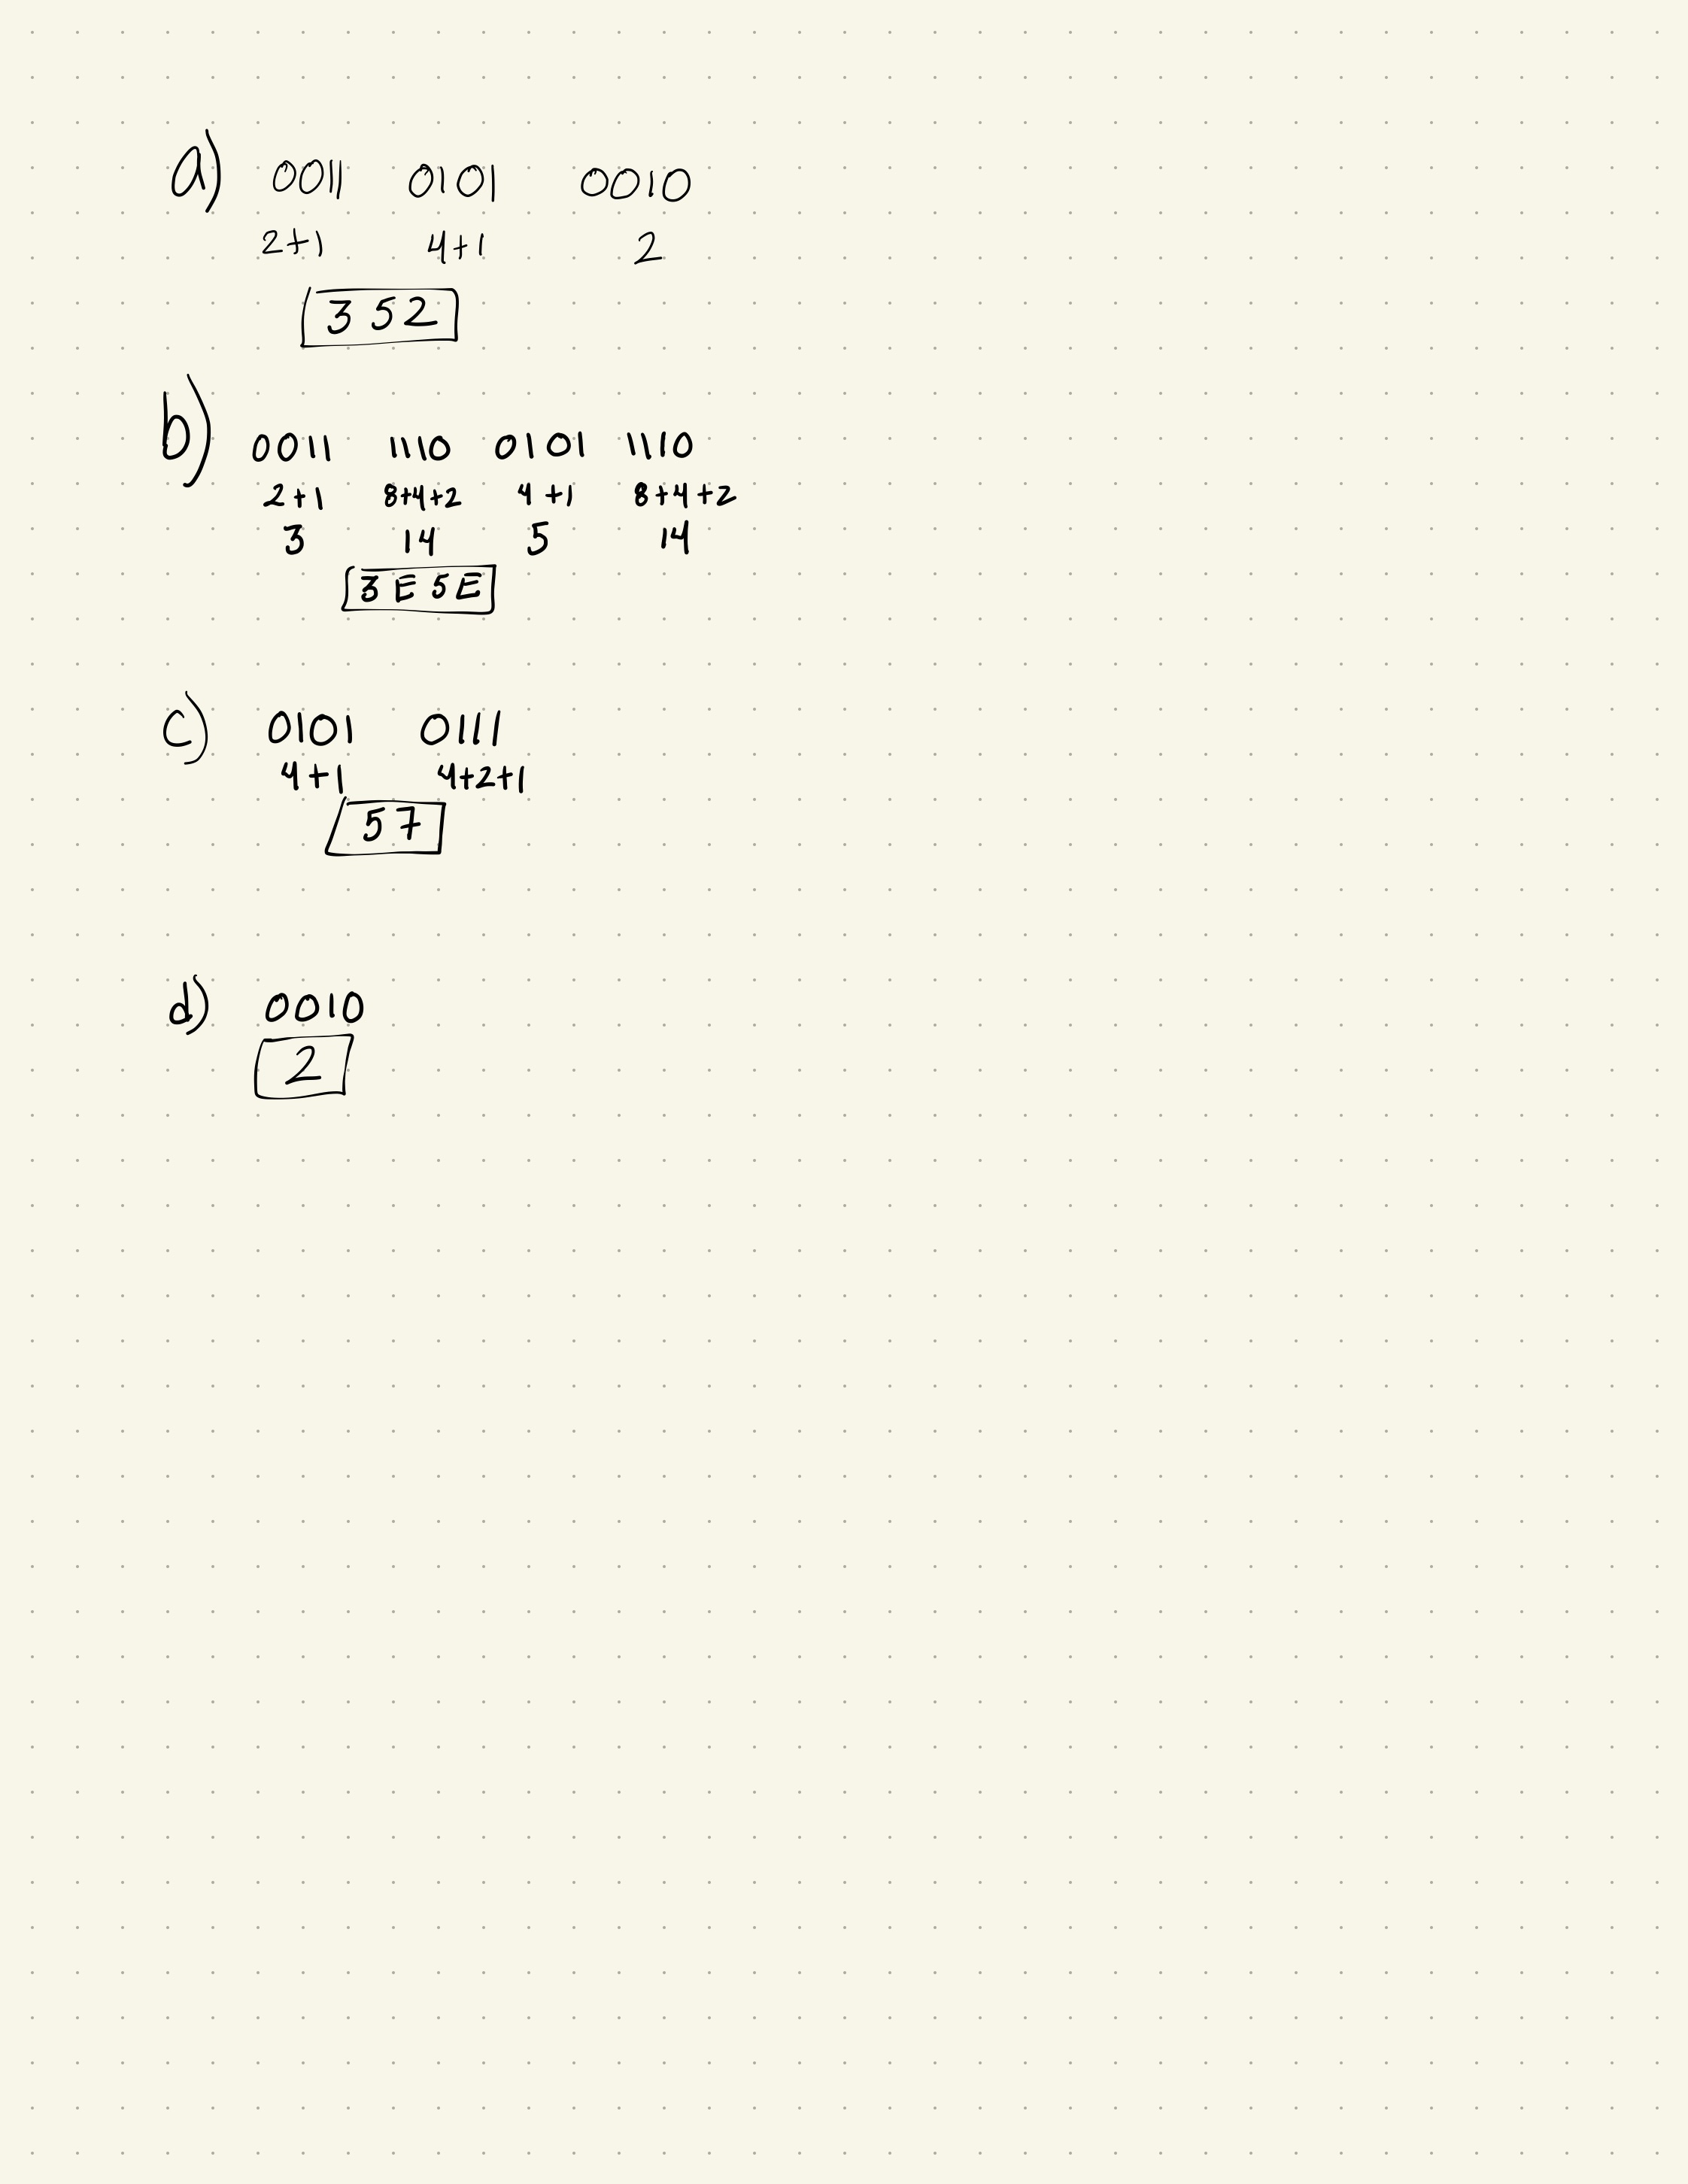 a) 0011 0101 0010
2+1 4+1 2
3 5 2
b) 0011 1110 0101 1110
2+1 8+4+2 4+1 8+4+2
3 14 5 14
3 E 5 E
c) 0101 0111
4+1 4+2+1
5 7
d) 0010
2